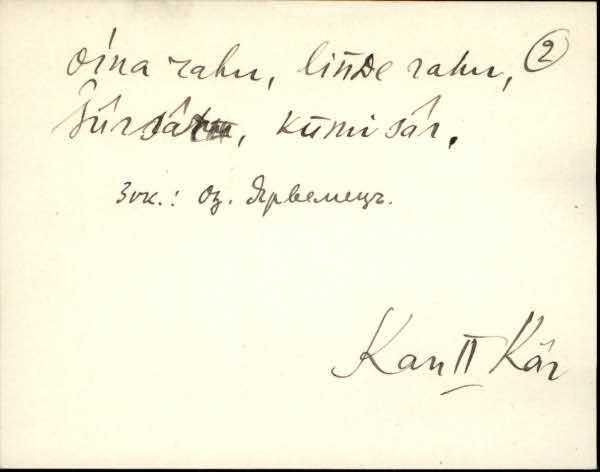 oina rahu, linde rahu, ②
sūr sār, kūmi sār.
Зок.: Оз. Ярвемецъ.
Kau II Kär